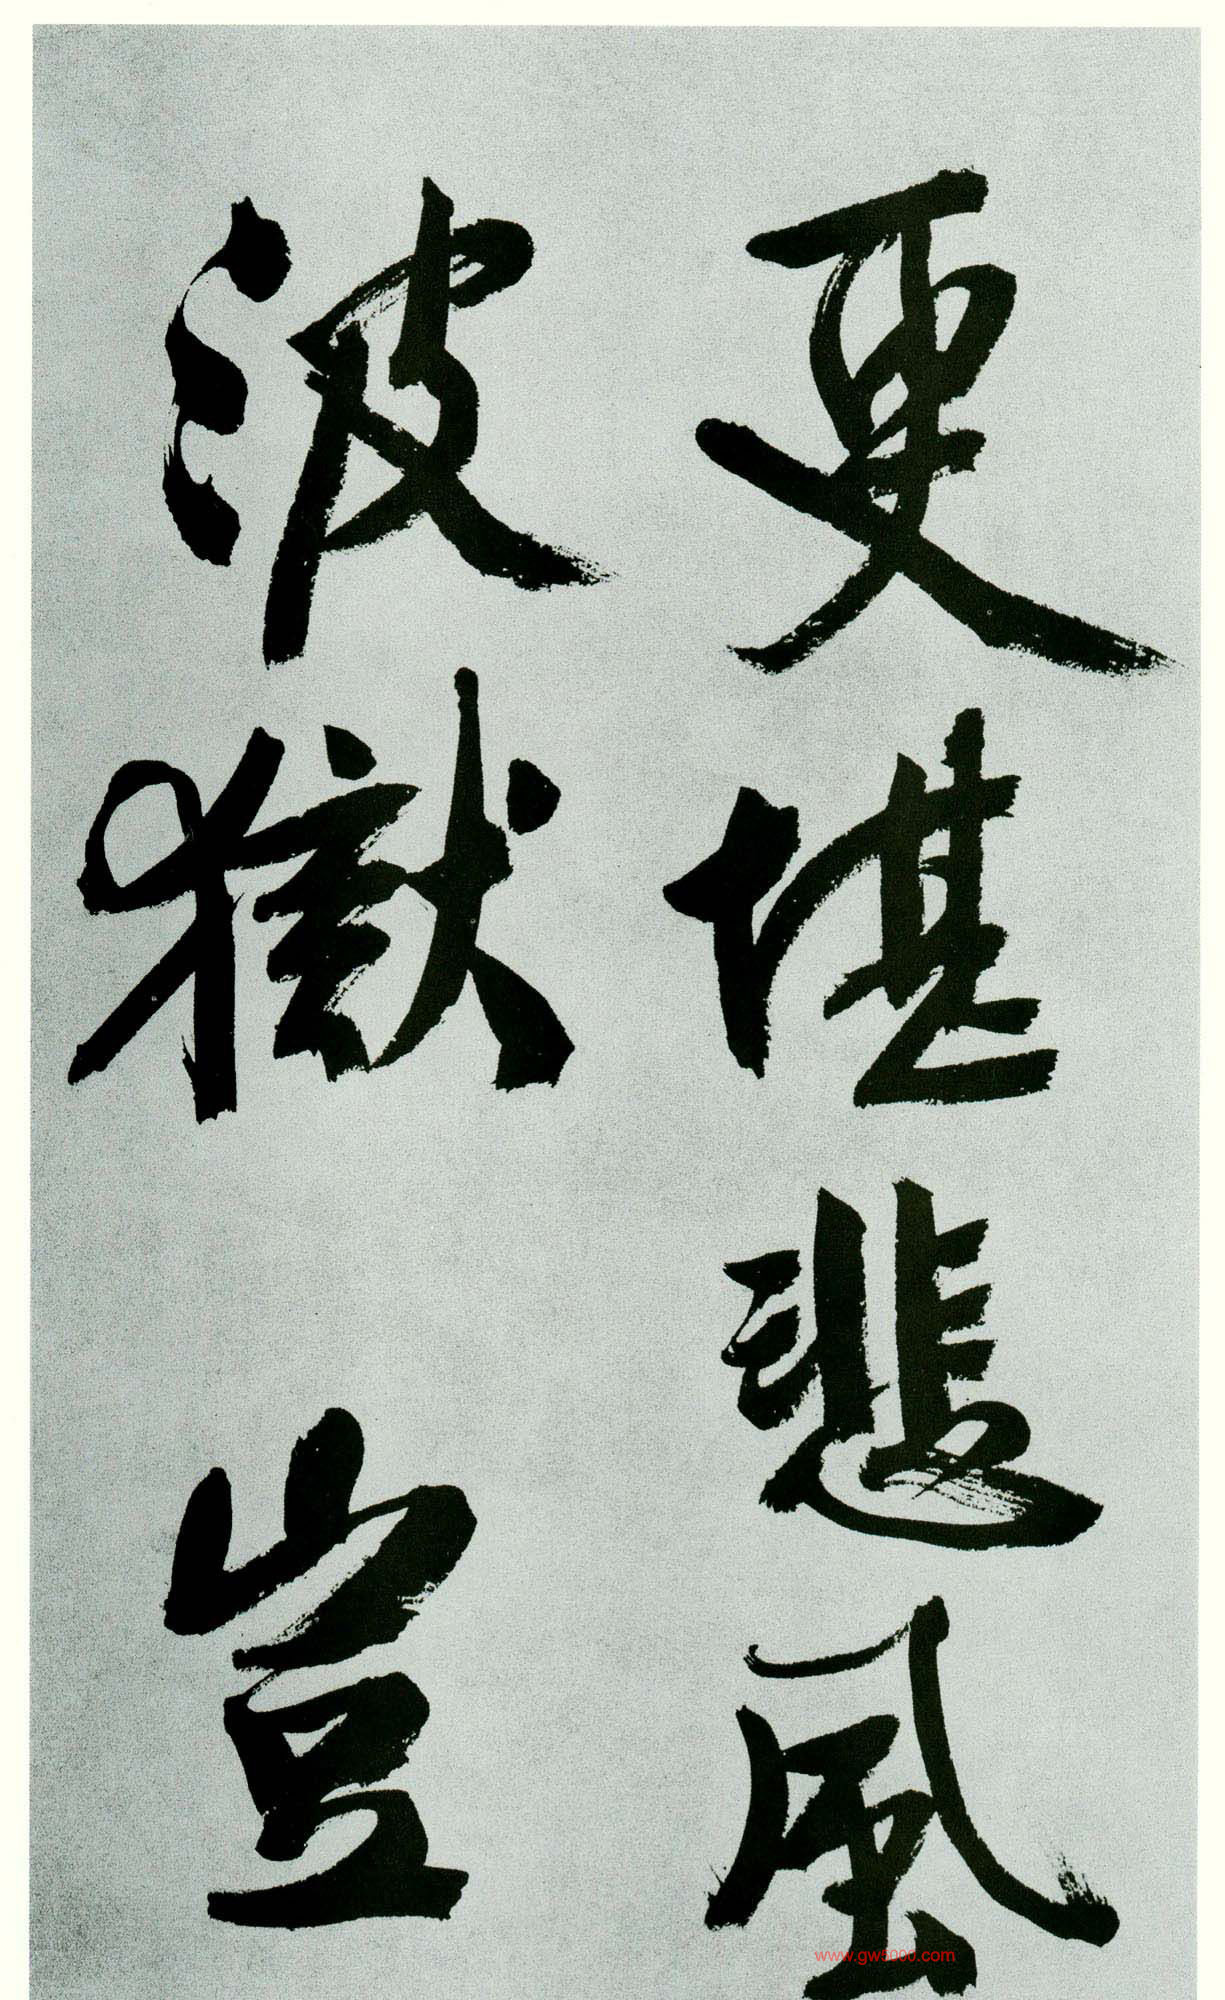 更堪悲風
波獄豈
www.gw5000.com